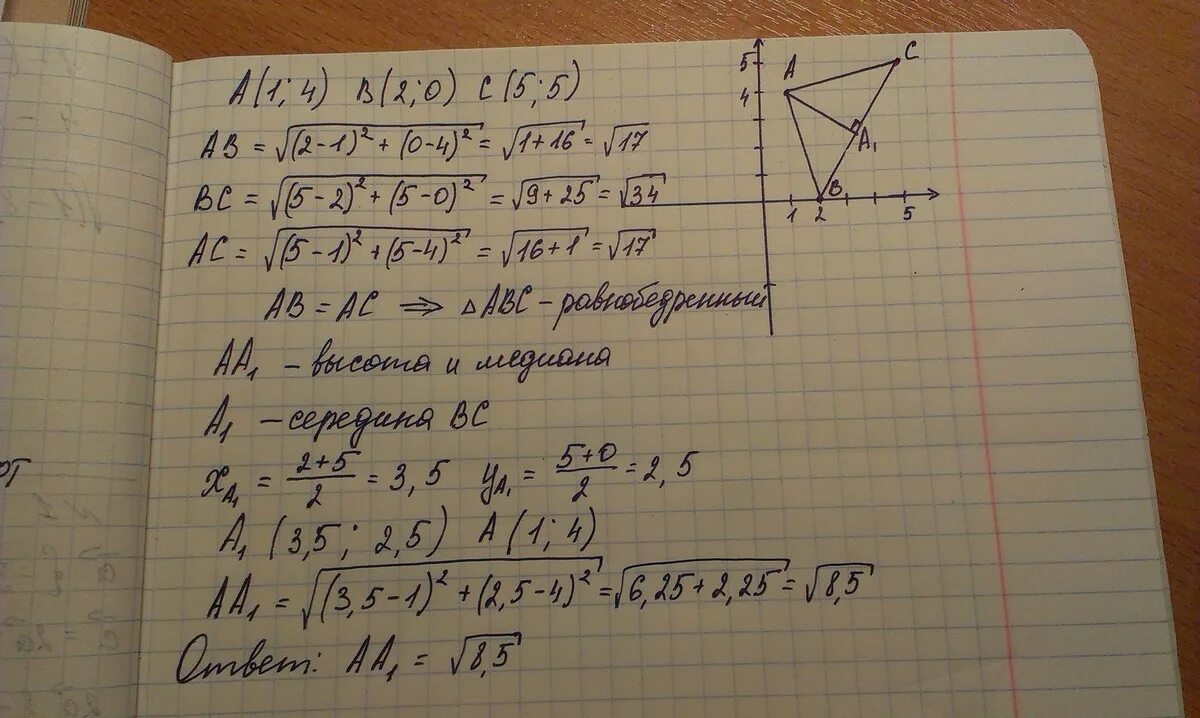 A(1; 4) B(2; 0) C(5; 5)
AB = √((2-1)² + (0-4)²) = √(1+16) = √17
BC = √((5-2)² + (5-0)²) = √(9+25) = √34
AC = √((5-1)² + (5-4)²) = √(16+1) = √17
AB = AC ⇒ △ABC - равнобедренный
AA₁ - высота и медиана
A₁ - середина BC
x_A₁ = (2+5)/2 = 3,5 y_A₁ = (5+0)/2 = 2,5
A₁ (3,5; 2,5) A(1; 4)
AA₁ = √((3,5-1)² + (2,5-4)²) = √(6,25+2,25) = √8,5
Ответ: AA₁ = √8,5
5
4
A
C
A₁
B
1 2 5